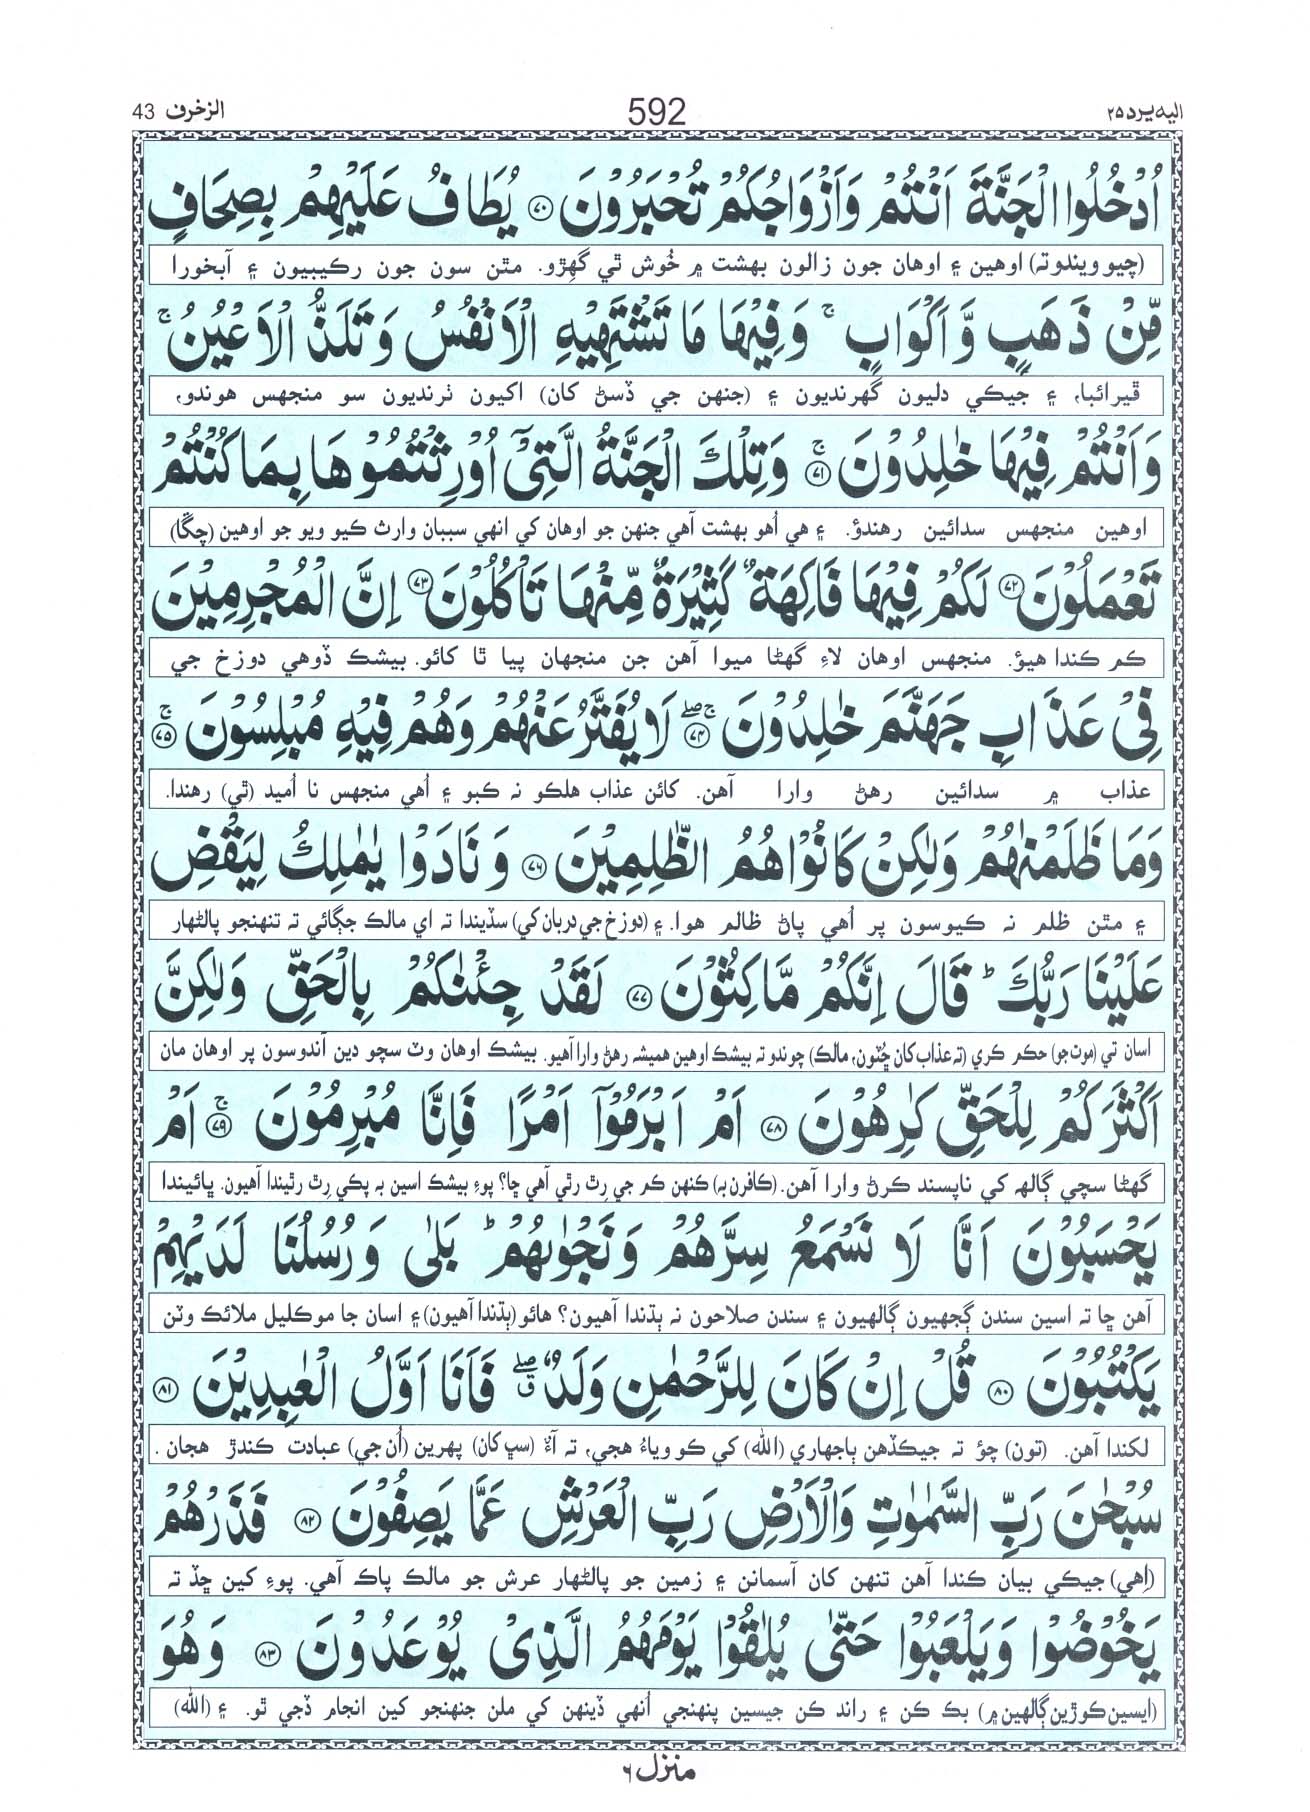 اليه يرد ٢٥
592
الزخرف 43
اُدْخُلُوا الْجَنَّةَ اَنْتُمْ وَاَزْوَاجُكُمْ تُحْبَرُوْنَ ۝٧٠ يُطَافُ عَلَيْهِمْ بِصِحَافٍ
(چيو ويندوته) اوهين ۽ اوهان جون زالون بهشت ۾ خُوش ٿي گهِڙو. مٿن سون جون رڪيبيون ۽ آبخورا
مِّنْ ذَهَبٍ وَّاَكْوَابٍ ۚ وَفِيْهَا مَا تَشْتَهِيْهِ الْاَنْفُسُ وَتَلَذُّ الْاَعْيُنُ ۚ
ڦيرائبا، ۽ جيڪي دليون گهرنديون ۽ (جنهن جي ڏسڻ کان) اکيون ٺرنديون سو منجهس هوندو،
وَاَنْتُمْ فِيْهَا خٰلِدُوْنَ ۝٧١ۚ وَتِلْكَ الْجَنَّةُ الَّتِيْٓ اُوْرِثْتُمُوْهَا بِمَا كُنْتُمْ
اوهين منجهس سدائين رهندؤ. ۽ هي اُهو بهشت آهي جنهن جو اوهان کي انهي سببان وارث ڪيو ويو جو اوهين (چڱا)
تَعْمَلُوْنَ ۝٧٢ لَكُمْ فِيْهَا فَاكِهَةٌ كَثِيْرَةٌ مِّنْهَا تَاْكُلُوْنَ ۝٧٣ اِنَّ الْمُجْرِمِيْنَ
ڪم ڪندا هيؤ. منجهس اوهان لاءِ گهڻا ميوا آهن جن منجهان پيا ٿا کائو. بيشڪ ڏوهي دوزخ جي
فِيْ عَذَابِ جَهَنَّمَ خٰلِدُوْنَ ۝٧٤ۚۖ لَا يُفَتَّرُ عَنْهُمْ وَهُمْ فِيْهِ مُبْلِسُوْنَ ۝٧٥ۚ
عذاب ۾ سدائين رهڻ وارا آهن. کائن عذاب هلڪو نہ ڪبو ۽ اُهي منجهس نا اُميد (ٿي) رهندا.
وَمَا ظَلَمْنٰهُمْ وَلٰكِنْ كَانُوْا هُمُ الظّٰلِمِيْنَ ۝٧٦ وَنَادَوْا يٰمٰلِكُ لِيَقْضِ
۽ مٿن ظلم نہ ڪيوسون پر اُهي پاڻ ظالم هوا. ۽ (دوزخ جي دربان کي) سڏيندا تہ اي مالڪ جڳائي تہ تنهنجو پالڻهار
عَلَيْنَا رَبُّكَ ؕ قَالَ اِنَّكُمْ مّٰكِثُوْنَ ۝٧٧ لَقَدْ جِئْنٰكُمْ بِالْحَقِّ وَلٰكِنَّ
اسان تي (موت جو) حڪم ڪري (تہ عذاب کان ڇُٽون، مالڪ) چوندو تہ بيشڪ اوهين هميشہ رهڻ وارا آهيو. بيشڪ اوهان وٽ سچو دين آندوسون پر اوهان مان
اَكْثَرَكُمْ لِلْحَقِّ كٰرِهُوْنَ ۝٧٨ اَمْ اَبْرَمُوْٓا اَمْرًا فَاِنَّا مُبْرِمُوْنَ ۝٧٩ۚ اَمْ
گهڻا سچي ڳالهہ کي ناپسند ڪرڻ وارا آهن. (ڪافرن بہ) ڪنهن ڪم جي رِٿ رٿي آهي ڇا؟ پوءِ بيشڪ اسين بہ پڪي رِٿ رٿيندا آهيون. ڀائيندا
يَحْسَبُوْنَ اَنَّا لَا نَسْمَعُ سِرَّهُمْ وَنَجْوٰىهُمْ ؕ بَلٰى وَرُسُلُنَا لَدَيْهِمْ
آهن ڇا تہ اسين سندن ڳجهيون ڳالهيون ۽ سندن صلاحون نہ ٻڌندا آهيون؟ هائو (ٻڌندا آهيون) ۽ اسان جا موڪليل ملائڪ وٽن
يَكْتُبُوْنَ ۝٨٠ قُلْ اِنْ كَانَ لِلرَّحْمٰنِ وَلَدٌ ۖق فَاَنَا اَوَّلُ الْعٰبِدِيْنَ ۝٨١
لکندا آهن. (تون) چؤ تہ جيڪڏهن ٻاجهاري (الله) کي ڪو وياءُ هجي، تہ آءٌ (سڀ کان) پهرين (اُن جي) عبادت ڪندڙ هجان .
سُبْحٰنَ رَبِّ السَّمٰوٰتِ وَالْاَرْضِ رَبِّ الْعَرْشِ عَمَّا يَصِفُوْنَ ۝٨٢ فَذَرْهُمْ
(اِهي) جيڪي بيان ڪندا آهن تنهن کان آسمانن ۽ زمين جو پالڻهار عرش جو مالڪ پاڪ آهي. پوءِ کين ڇڏ تہ
يَخُوْضُوْا وَيَلْعَبُوْا حَتّٰى يُلٰقُوْا يَوْمَهُمُ الَّذِيْ يُوْعَدُوْنَ ۝٨٣ وَهُوَ
(ايسين ڪوڙين ڳالهين ۾) بڪ ڪن ۽ راند ڪن جيسين پنهنجي اُنهي ڏينهن کي ملن جنهنجو کين انجام ڏجي ٿو. ۽ (الله)
منزل ٦